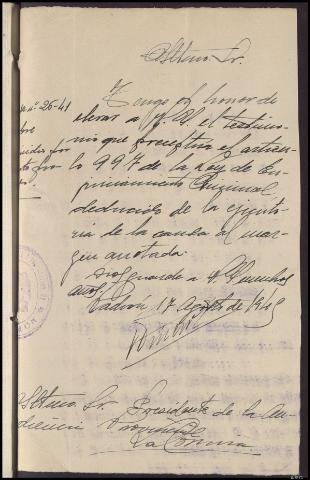 Iltmo. Sr.
Tengo el honor de
elevar a V. I. el testimo-
nio que preceptúa el artícu-
lo 997 de la Ley de En-
juiciamiento Criminal
deducido de la ejecuto-
ria de la causa al mar-
gen anotada.
nº 26-41
Dios guarde a V. I. muchos
años.
Padrón, 17 Agosto de 19
Iltmo. Sr. Presidente de la Au-
diencia Provincial
La Coruña.